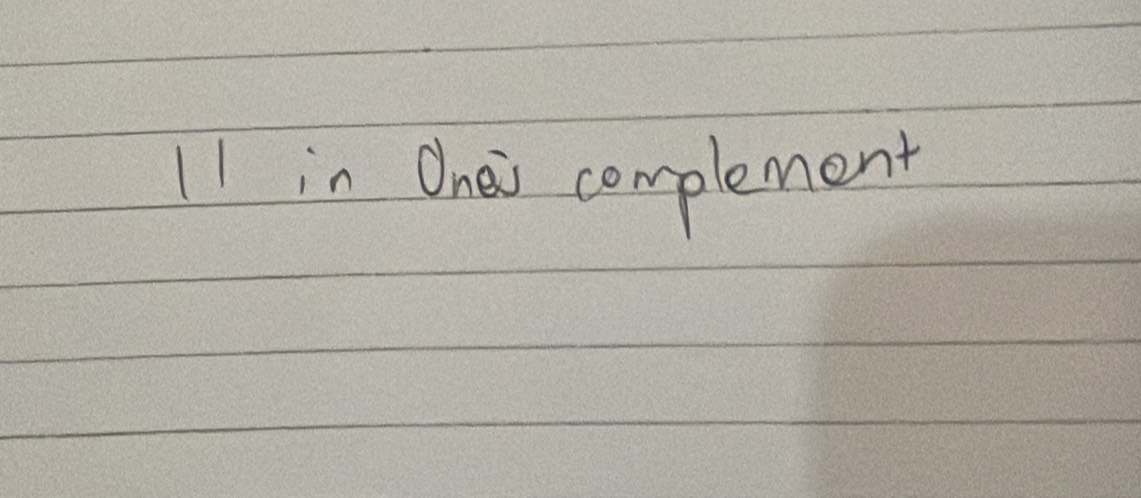 11 in One's complement